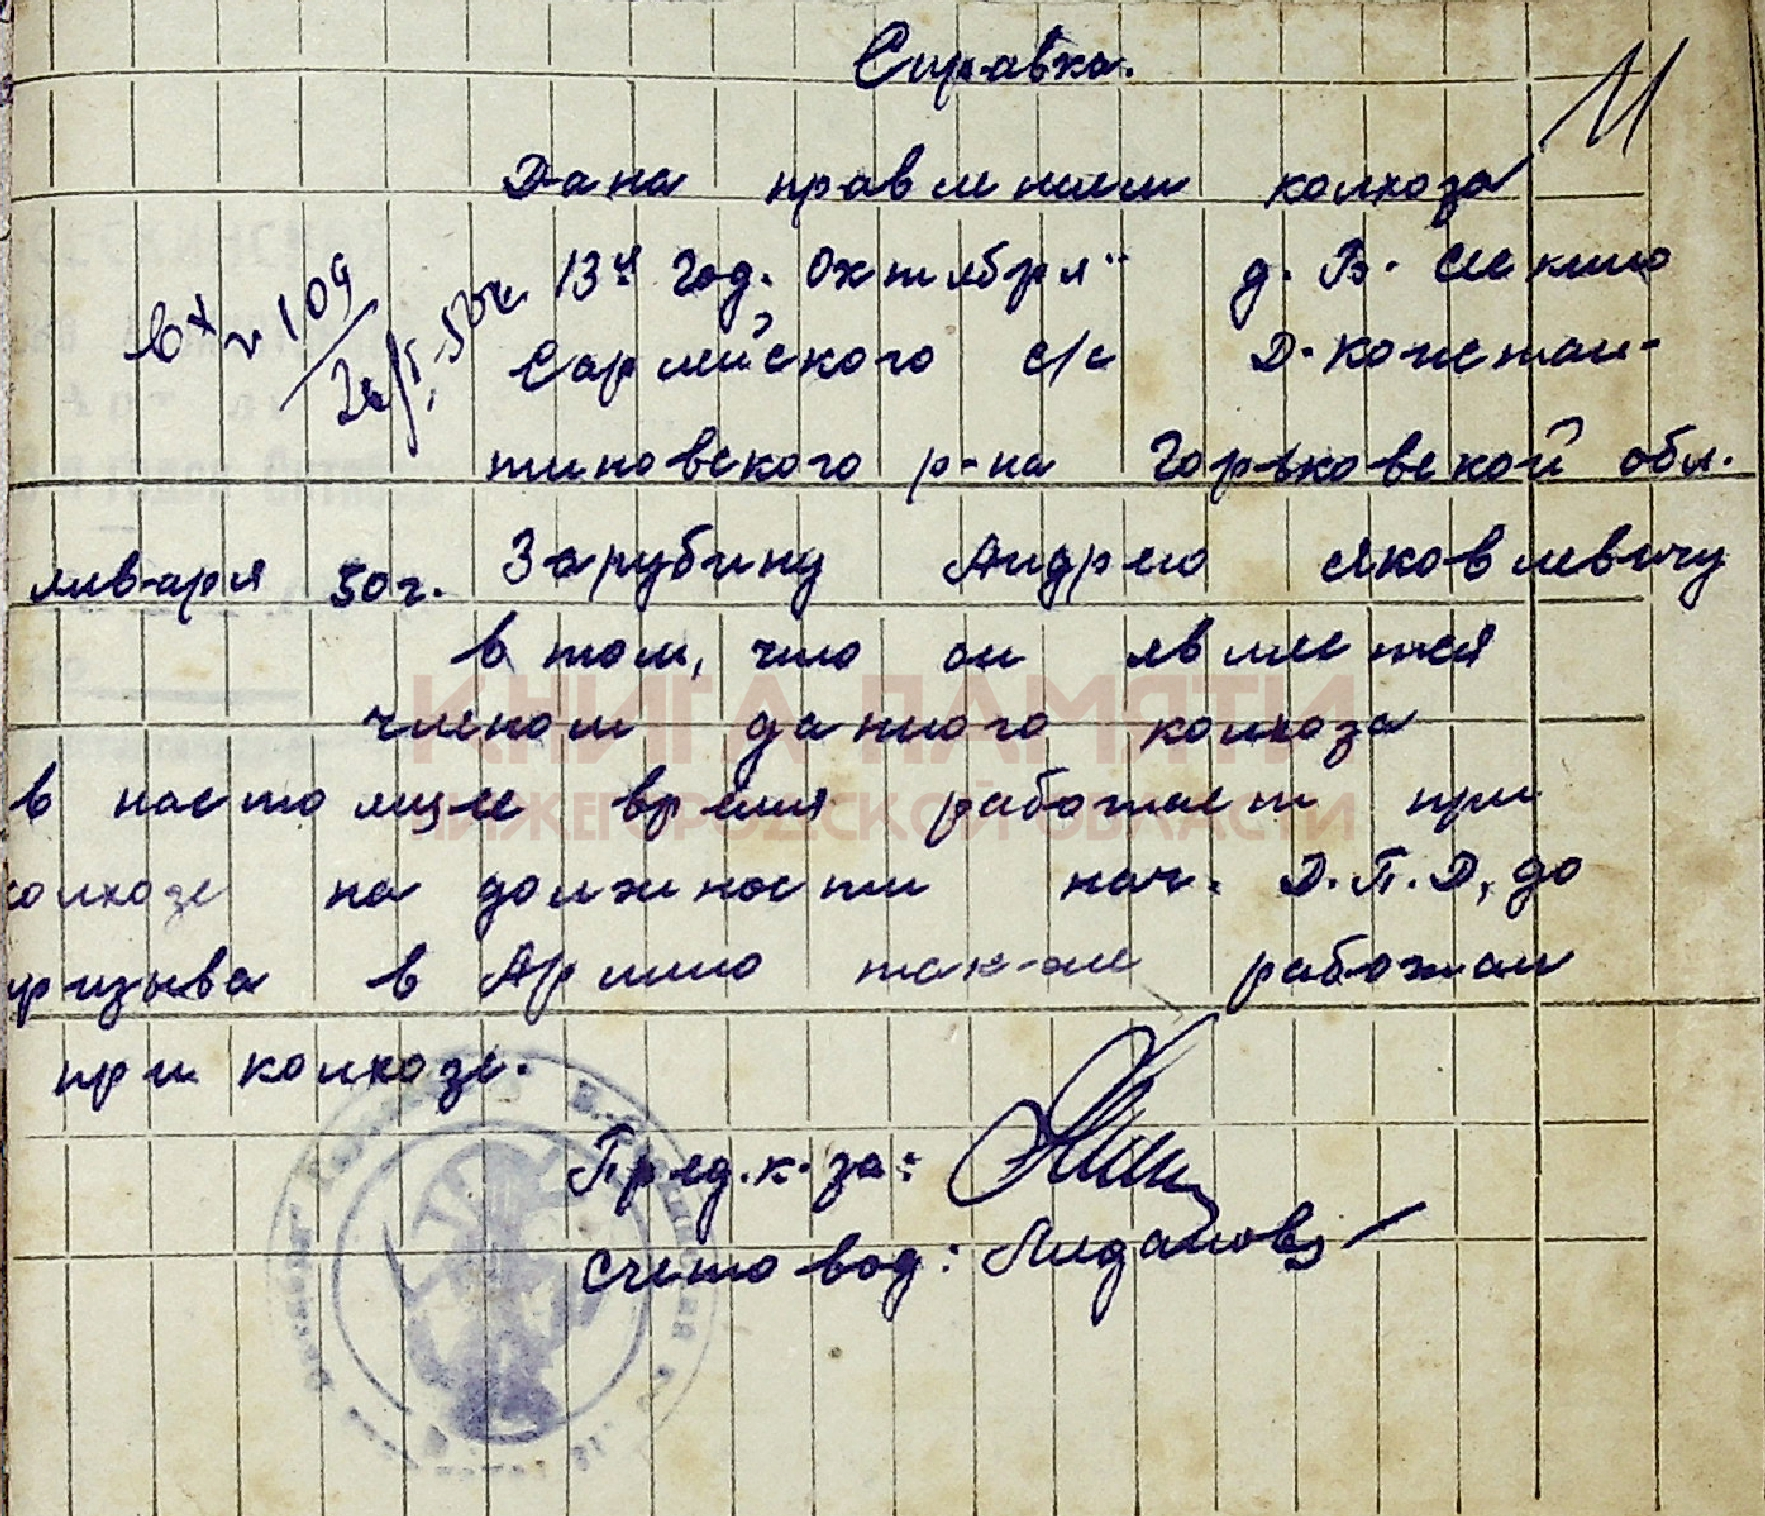 Справка.
11
Дана правлением колхоза
13й год. Октября" д. В. Сескино
вх N 109
Сарлейского с/с Д-Констан-
тиновского р-на Горьковской обл.
января 50г. Зарубину Андрею Яковлевичу
в том, что он является
КНИГА ПАМЯТИ
членом данного колхоза
в настоящее время работает при
НИЖЕГОРОДСКОЙ ОБЛАСТИ
колхозе на должности нач. Д.П.Д, до
призыва в Армию так-же работал
при колхозе.
Пред.к-за:
Счетовод: